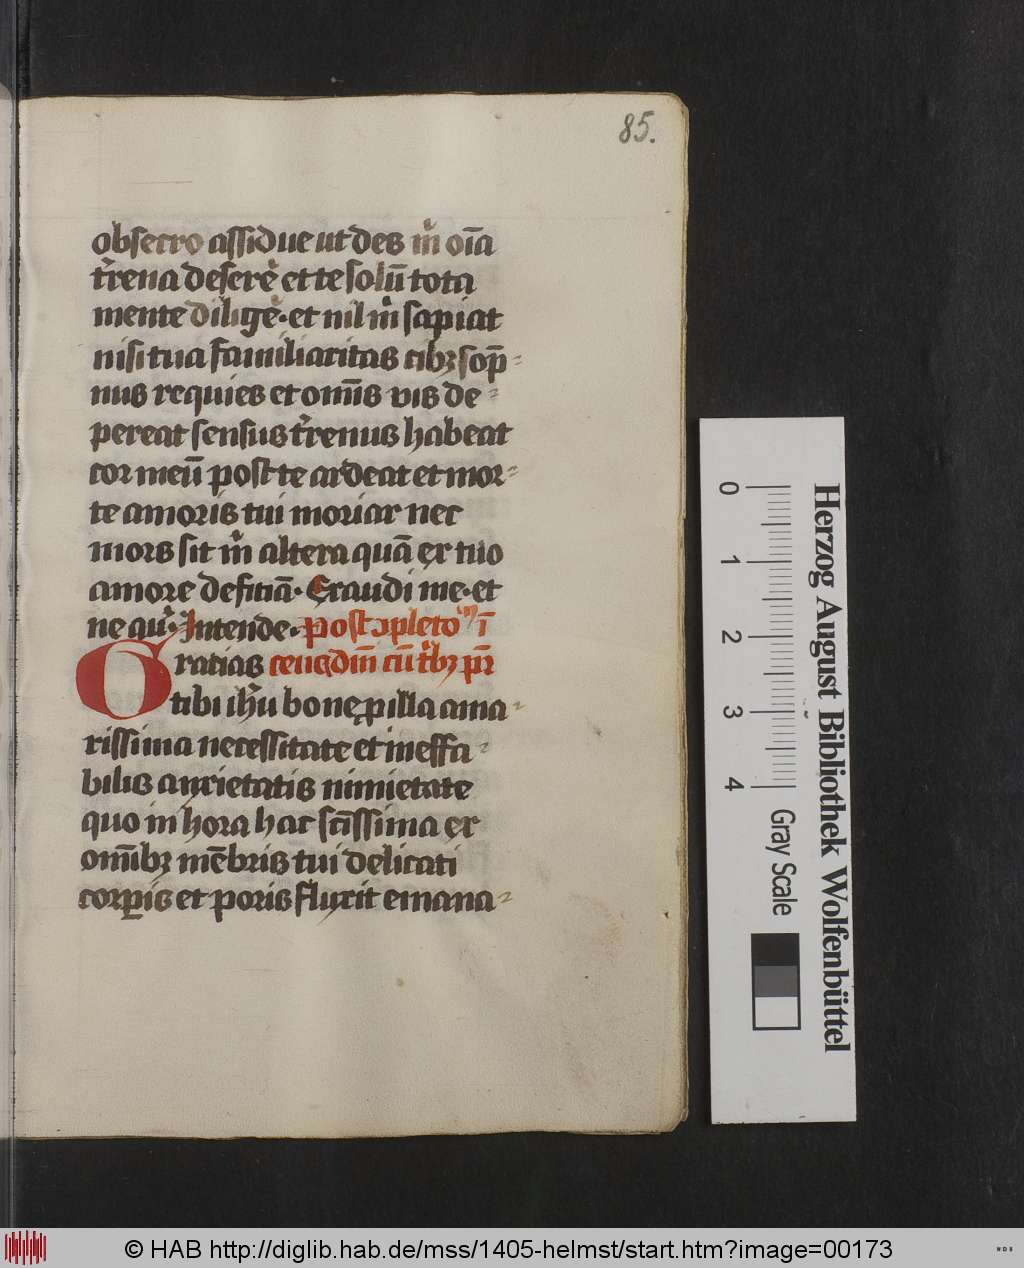 85.
obsecro assidue ut des m̍ oīa
t̍rena deserē et te solū tota
mente diligē · et nil m̍ sapiat
nisi tua familiaritas cibꝫ sop̄⸗
nus requies et om̄is vis de⸗
pereat sensus t̍renus habeat
cor meū post te ardeat et mor⸗
te amoris tui moriar nec
mors sit m̍ altera quā ex tuo
amore defitiā · Exaudi me · et
ne qu̍ · Intende · post ɔpletoᵐ ī
Gratias
tibi ih̄u bone ꝓ illa ama⸗
rissima necessitate et ineffa⸗
bilis anxietatis nimietate
quo in hora hac sc̄issima ex
om̄ibꝫ mēbris tui delicati
corꝑis et poris fluxit emana⸗
0 1 2 3 4
Gray Scale
Herzog August Bibliothek Wolfenbüttel
© HAB http://diglib.hab.de/mss/1405-helmst/start.htm?image=00173